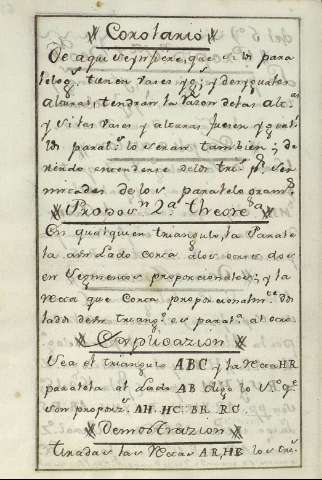 Corolario
De aqui se ynfiere, que si los para
lelogs. tienen vases ygs. y desyguales
alturas, tendràn la razon de las alts.
y si las vases y alturas fuesen yguals.
los parals. lo seràn tambien; de
viendo entenderse de los tris. pr. ser
mitades de los paralelograms.
Proposn. 2a. theorema.
En qualquier triangulo, la Parale
la a un Lado corta a los otros dos
en Segmentos proporcionales; y la
recta que corta proporcionalmte. dos
lados de un triango. es parala. al otro
Explicazion
Sea el triangulo ABC y la recta HR
paralela al Lado AB digo lo 1o. qe.
son proporzs. AH. HC. BR. RC.
Demostrazion
Tiradas las rectas AR, HB los tris.